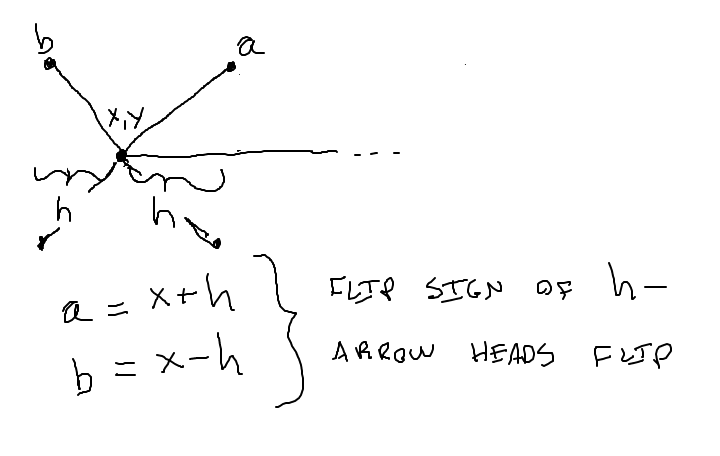 b
a
x,y
h
h
a = x+h
b = x-h
FLIP SIGN OF h-
ARROW HEADS FLIP